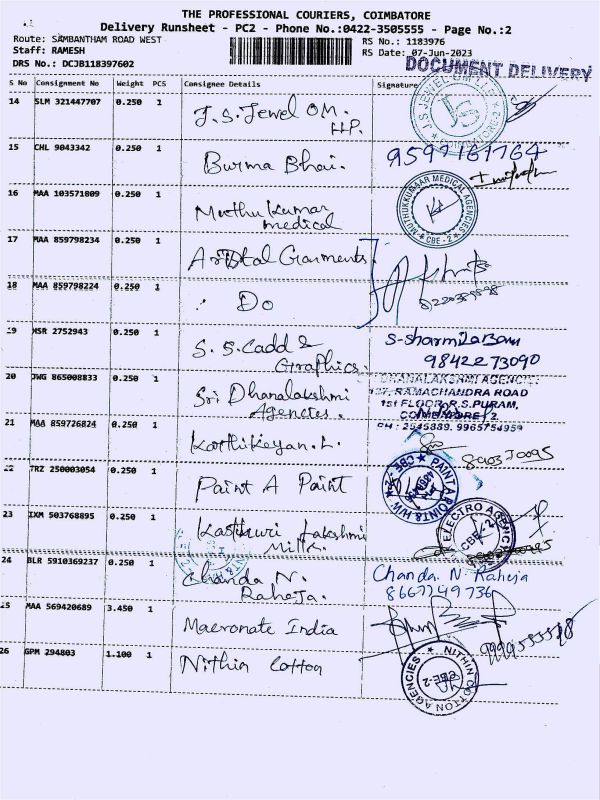 THE PROFESSIONAL COURIERS, COIMBATORE
Delivery Runsheet - PC2 - Phone No.:0422-3505555 - Page No.:2
Route: SAMBANTHAM ROAD WEST
RS No.: 1183976
Staff: RAMESH
RS Date: 07-Jun-2023
DRS No.: DCJB118397602
DOCUMENT DELIVERY
S No Consignment No Weight PCS Consignee Details Signature
14 SLM 321447707 0.250 1 J.S. Jewel OM.
H.P.
J S JEWEL
JS
COIMBATORE-2
15 CHL 9043342 0.250 1 Burma Bhai. 9597161764
16 MAA 103571809 0.250 1 Muthu Kumar
medical
MUTHUKKUMAAR MEDICAL AGENCIES
CBE - 2
17 MAA 859798234 0.250 1 Aristal Garments
18 MAA 859798224 0.250 1 Do
19 MSR 2752943 0.250 1 S.S. Cadd & S-sharmila Banu
Graphics. 9842273090
20 JWG 865008833 0.250 1 Sri Dhanalakshmi DHANALAKSHMI AGENCIES
Agencies. 127, RAMACHANDRA ROAD
1st FLOOR, R.S.PURAM,
COIMBATORE-2.
PH : 2545889, 9965754959
21 MAA 859726824 0.250 1 Karthikeyan. L.
22 TRZ 250003054 0.250 1 Paint A Paint
PAINT A POINT
CBE - 2
23 IXM 503768895 0.250 1 Kasthuri Lakshmi
Mills.
ELECTRO AGENCIES
CBE-2
24 BLR 5910369237 0.250 1 Chanda N. Chanda. N. Raheja
Raheja. 8667749736
25 MAA 569420689 3.450 1 Macronate India
26 GPM 294803 1.100 1 Nithin Cotton
NITHIN COTTON AGENCIES
CBE-2